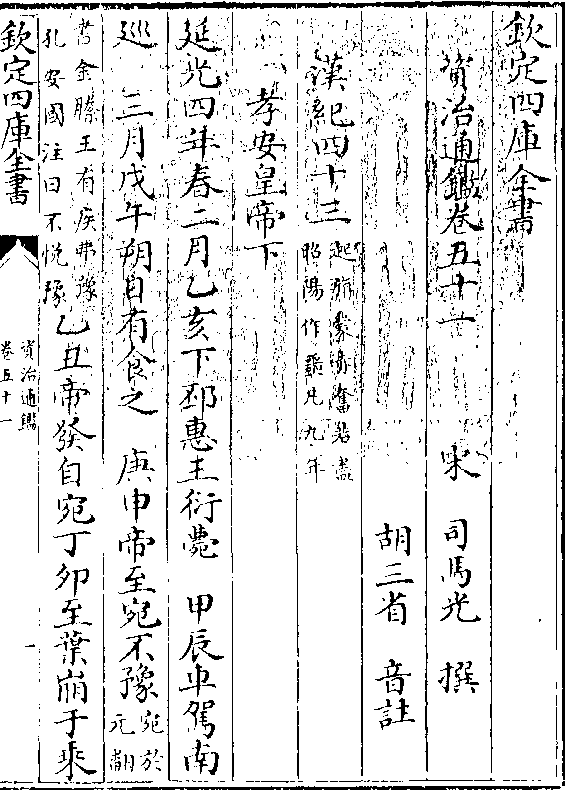 欽定四庫全書
資治通鑑卷五十一
宋 司馬光 撰
胡三省 音註
漢紀四十三 起旃蒙赤奮若盡昭陽作噩凡九年
孝安皇帝下
延光四年春二月乙亥下邳惠王衍薨 甲辰車駕南
巡 三月戊午朔日有食之 庚申帝至宛不豫 宛於元翻
書金縢王有疾弗豫孔安國注曰不悅豫 乙丑帝發自宛丁卯至葉崩于乘
欽定四庫全書
資治通鑑
卷五十一
一